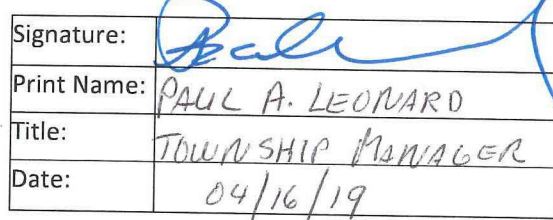 Signature:
Print Name: PAUL A. LEONARD
Title: TOWNSHIP MANAGER
Date: 04/16/19